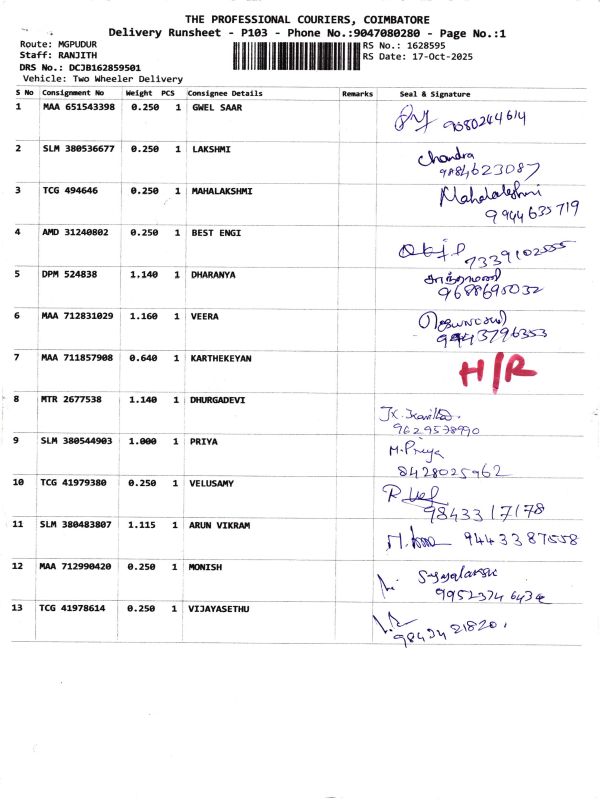 THE PROFESSIONAL COURIERS, COIMBATORE
Delivery Runsheet - P103 - Phone No.:9047080280 - Page No.:1
Route: MGPUDUR RS No.: 1628595
Staff: RANJITH RS Date: 17-Oct-2025
DRS No.: DCJB162859501
Vehicle: Two Wheeler Delivery
S No Consignment No Weight PCS Consignee Details Remarks Seal & Signature
1 MAA 651543398 0.250 1 GWEL SAAR
9580244614
2 SLM 380536677 0.250 1 LAKSHMI
Chandra
9884623087
3 TCG 494646 0.250 1 MAHALAKSHMI
Mahalakshmi
9944635719
4 AMD 31240802 0.250 1 BEST ENGI
7339102555
5 DPM 524838 1.140 1 DHARANYA
சாந்தாமணி
9688695032
6 MAA 712831029 1.160 1 VEERA
ஜெயலட்சுமி
9443796353
7 MAA 711857908 0.640 1 KARTHEKEYAN
H/R
8 MTR 2677538 1.140 1 DHURGADEVI
9629578990
9 SLM 380544903 1.000 1 PRIYA
M.Priya
8428025962
10 TCG 41979380 0.250 1 VELUSAMY
9843317178
11 SLM 380483807 1.115 1 ARUN VIKRAM
9443387558
12 MAA 712990420 0.250 1 MONISH
13 TCG 41978614 0.250 1 VIJAYASETHU